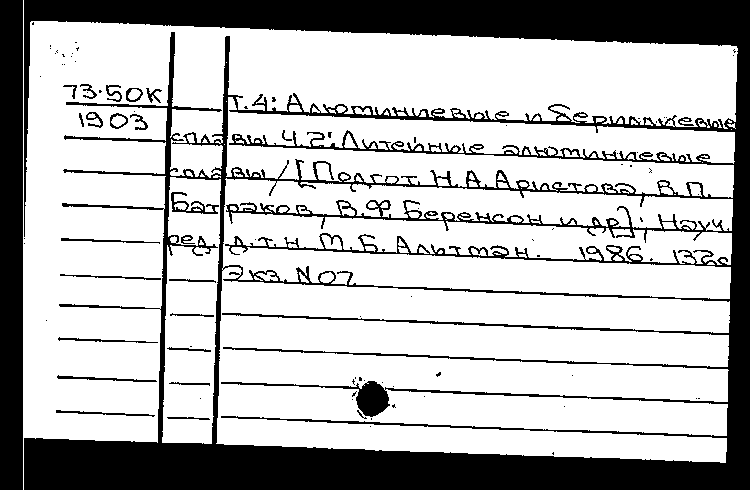 73-50К Т.4: Алюминиевые и бериллиевые
1903 сплавы. Ч.2: Литейные алюминиевые
сплавы / [Подгот. Н.А. Аристова, В.П.
Батраков, В.Ф. Беренсон и др]; Науч.
ред. д.т.н. М.Б. Альтман. 1986. 132с
Экз. N07